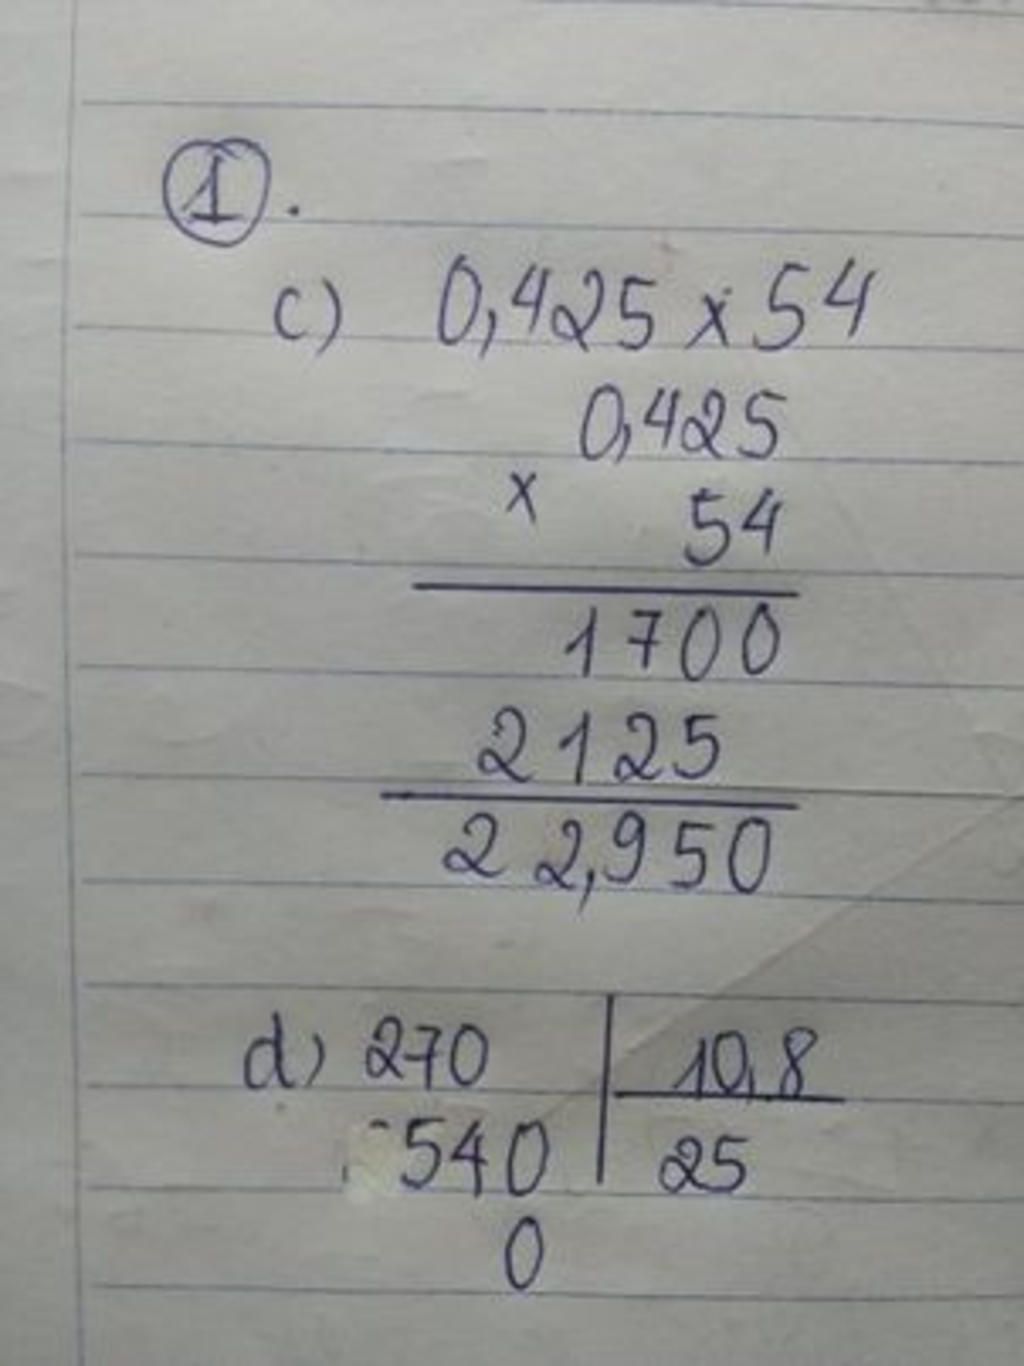 1.
c) 0,425 x 54
0,425
x 54
1700
2125
22,950
d) 270 10,8
540 25
0